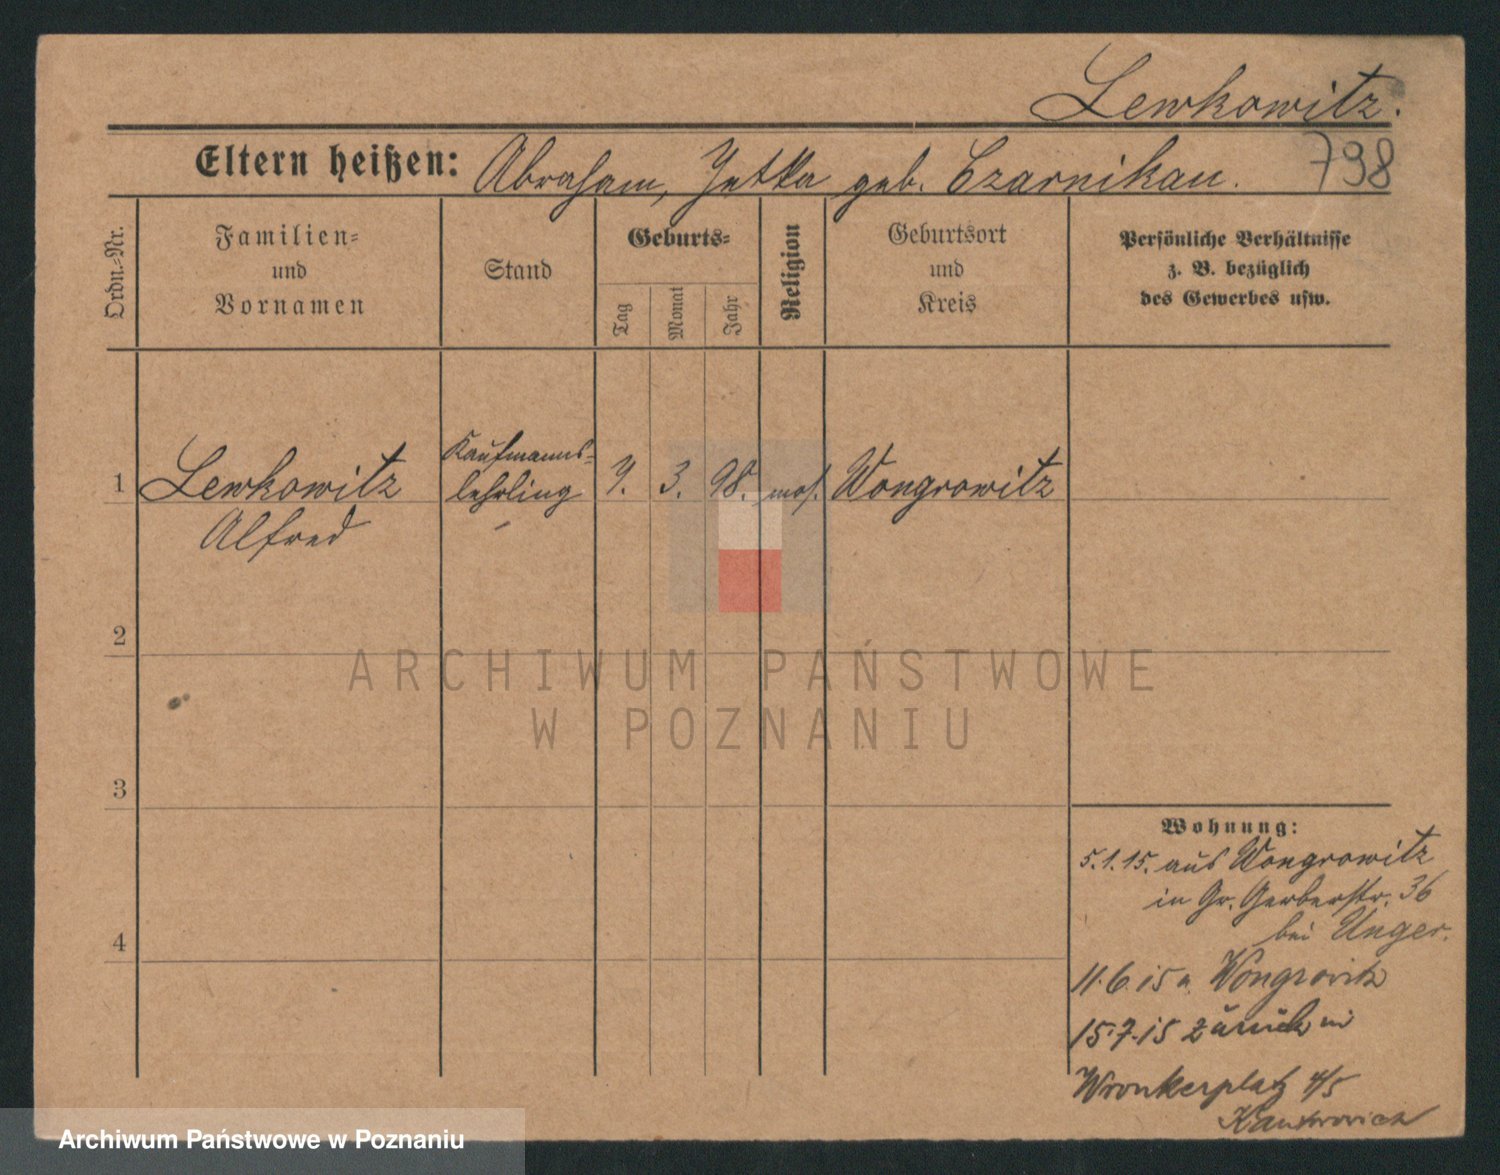 Lewkowitz.
Eltern heißen: Abraham, Jetka geb. Czarnikau.
798
Ordn.-Nr.
Familien-
und
Vornamen
Stand
Geburts-
Tag
Monat
Jahr
Religion
Geburtsort
und
Kreis
Persönliche Verhältnisse
z. B. bezüglich
des Gewerbes usw.
1
Lewkowitz
Alfred
Kaufmanns-
lehrling
7. 3. 98. mos. Wongrowitz
2
3
4
Wohnung:
5.1.15. aus Wongrowitz
in Gr. Gerberstr. 36
bei Unger.
11.6.15 n. Wongrowitz
15.7.15 zurück in
Wronkerplatz 4/5
ARCHIWUM PAŃSTWOWE
W POZNANIU
Archiwum Państwowe w Poznaniu